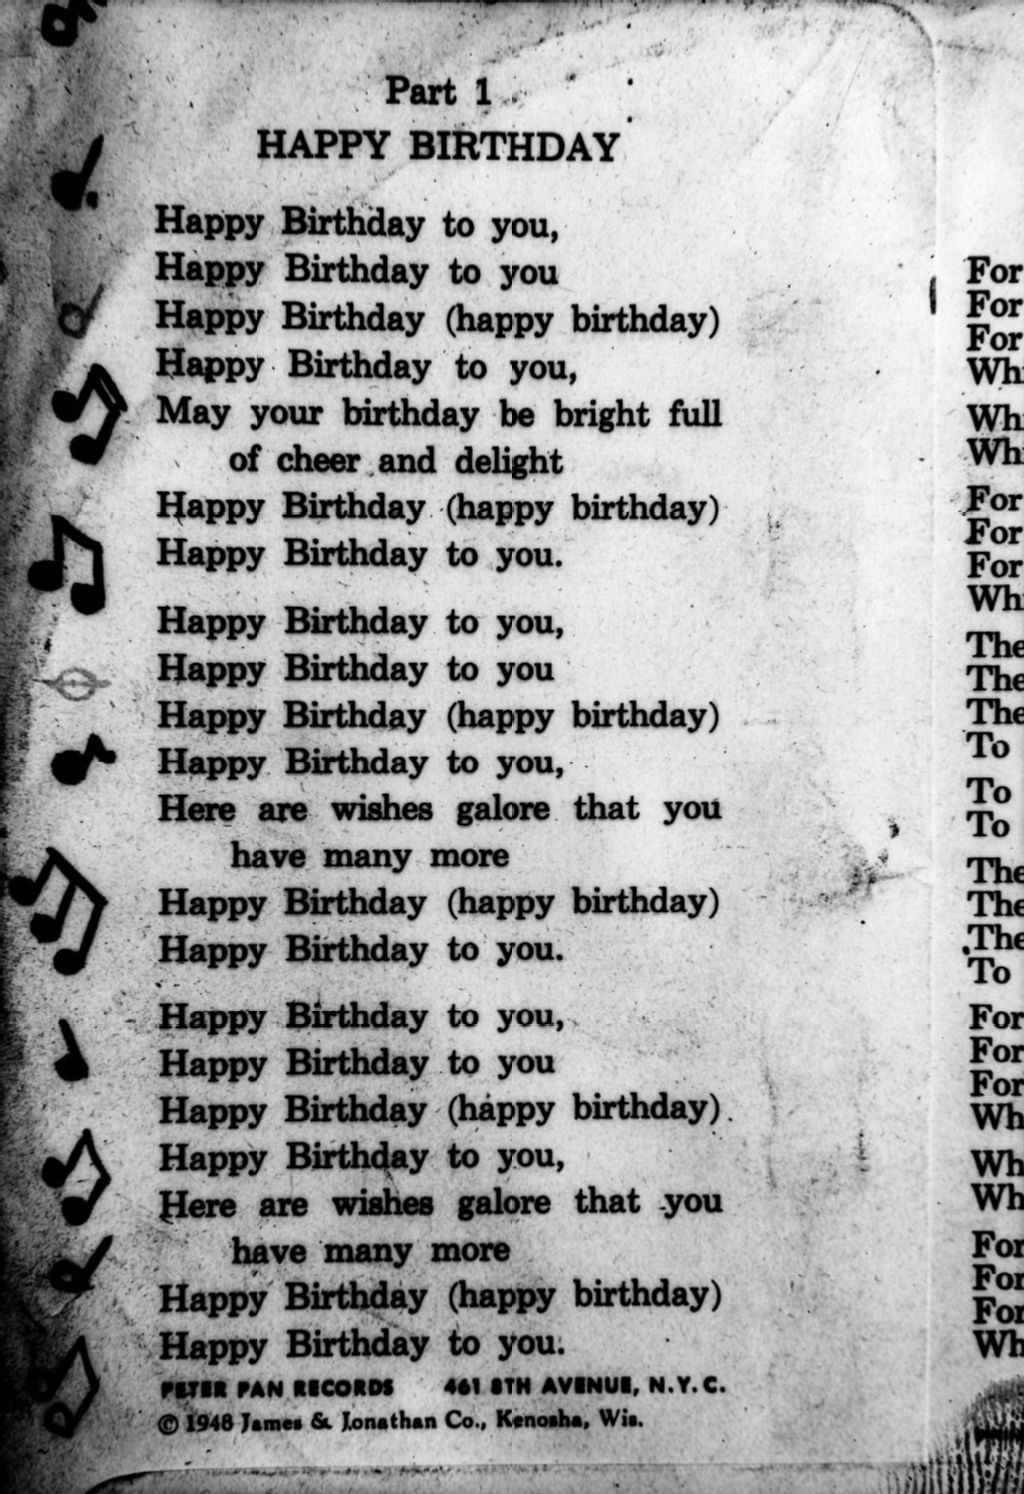 Part 1
HAPPY BIRTHDAY
Happy Birthday to you,
Happy Birthday to you
Happy Birthday (happy birthday)
Happy Birthday to you,
May your birthday be bright full
of cheer and delight
Happy Birthday (happy birthday)
Happy Birthday to you.
Happy Birthday to you,
Happy Birthday to you
Happy Birthday (happy birthday)
Happy Birthday to you,
Here are wishes galore that you
have many more
Happy Birthday (happy birthday)
Happy Birthday to you.
Happy Birthday to you,
Happy Birthday to you
Happy Birthday (happy birthday)
Happy Birthday to you,
Here are wishes galore that you
have many more
Happy Birthday (happy birthday)
Happy Birthday to you.
PETER PAN RECORDS 461 8TH AVENUE, N.Y.C.
© 1948 James & Jonathan Co., Kenosha, Wis.
For
For
For
For
For
For
To
To
To
To
For
For
For
For
For
For